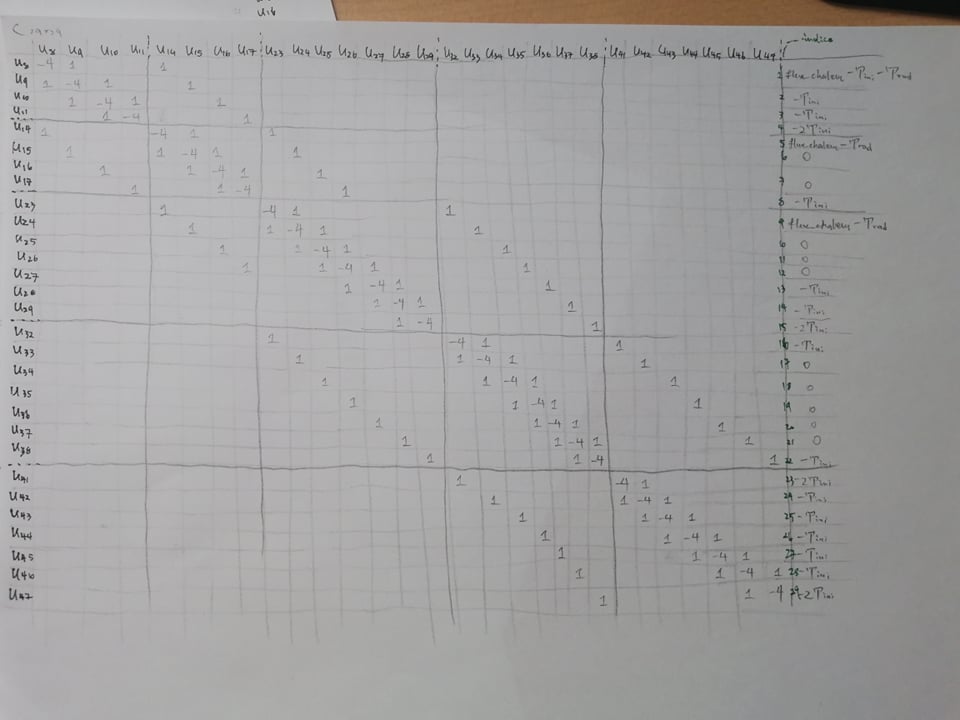 U16
indice
U8 U9 U10 U11 U14 U15 U16 U17 U23 U24 U25 U26 U27 U28 U29 U32 U33 U34 U35 U36 U37 U38 U41 U42 U43 U44 U45 U46 U47
U8 -4 1 1 1 flux_chaleur -Tini -Trad
U9 1 -4 1 1
U10 1 -4 1 1 2 -Tini
U11 1 -4 1 3 -Tini
U14 1 -4 1 1 4 -2Tini
U15 1 1 -4 1 1 5 flux_chaleur -Trad
U16 1 1 -4 1 1 6 0
U17 1 1 -4 1 7 0
8 -Tini
U23 1 -4 1 1
U24 1 1 -4 1 1 9 flux_chaleur -Trad
U25 1 1 -4 1 1 10 0
U26 1 1 -4 1 1 11 0
12 0
U27 1 -4 1 1 13 -Tini
U28 1 -4 1 1 14 -Tini
U29 1 -4 1 15 -2Tini
U32 1 -4 1 1 16 -Tini
U33 1 1 -4 1 1 17 0
U34 1 1 -4 1 1 18 0
U35 1 1 -4 1 1 19 0
U36 1 1 -4 1 1 20 0
U37 1 1 -4 1 1 21 0
U38 1 1 -4 1 22 -Tini
U41 1 -4 1 23 -2Tini
U42 1 1 -4 1 24 -Tini
U43 1 1 -4 1 25 -Tini
U44 1 1 -4 1 26 -Tini
U45 1 1 -4 1 27 -Tini
U46 1 1 -4 1 28 -Tini
U47 1 1 -4 29 -2Tini